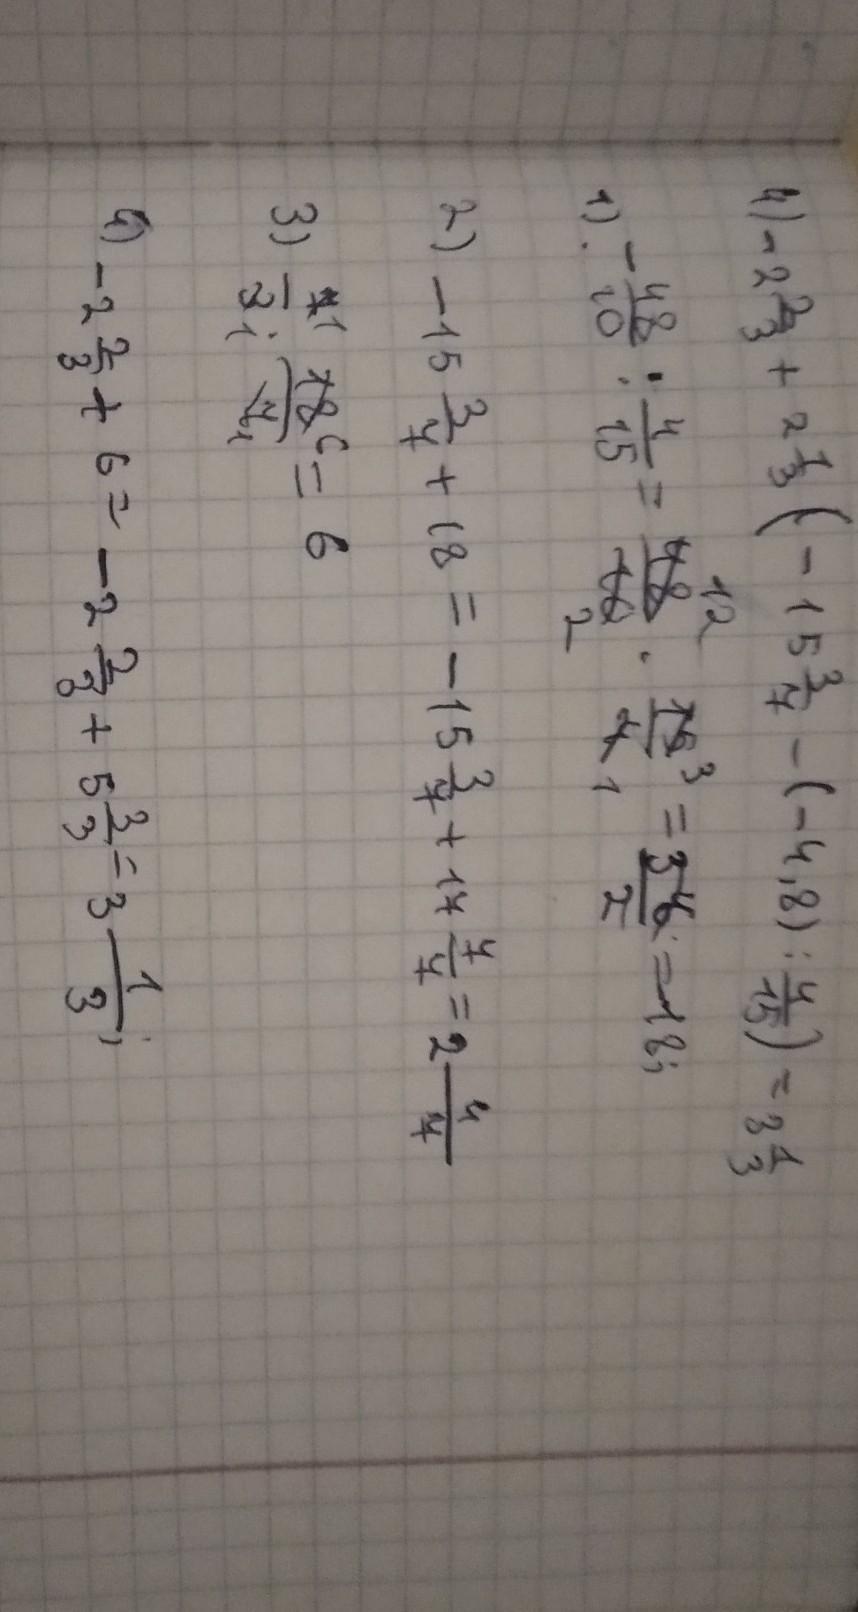 4) -2 2/3 + 2 1/3 (-15 3/7 - (-4,8) : 4/15) = 3 1/3
1) -48/10 : 4/15 = 48/10 12 2 · 15/4 3 1 = 36/2 = -18;
2) -15 3/7 + 18 = -15 3/7 + 17 7/7 = 2 4/7
3) 7/3 1 1 · 18/7 6 1 = 6
4) -2 2/3 + 6 = -2 2/3 + 5 3/3 = 3 1/3;